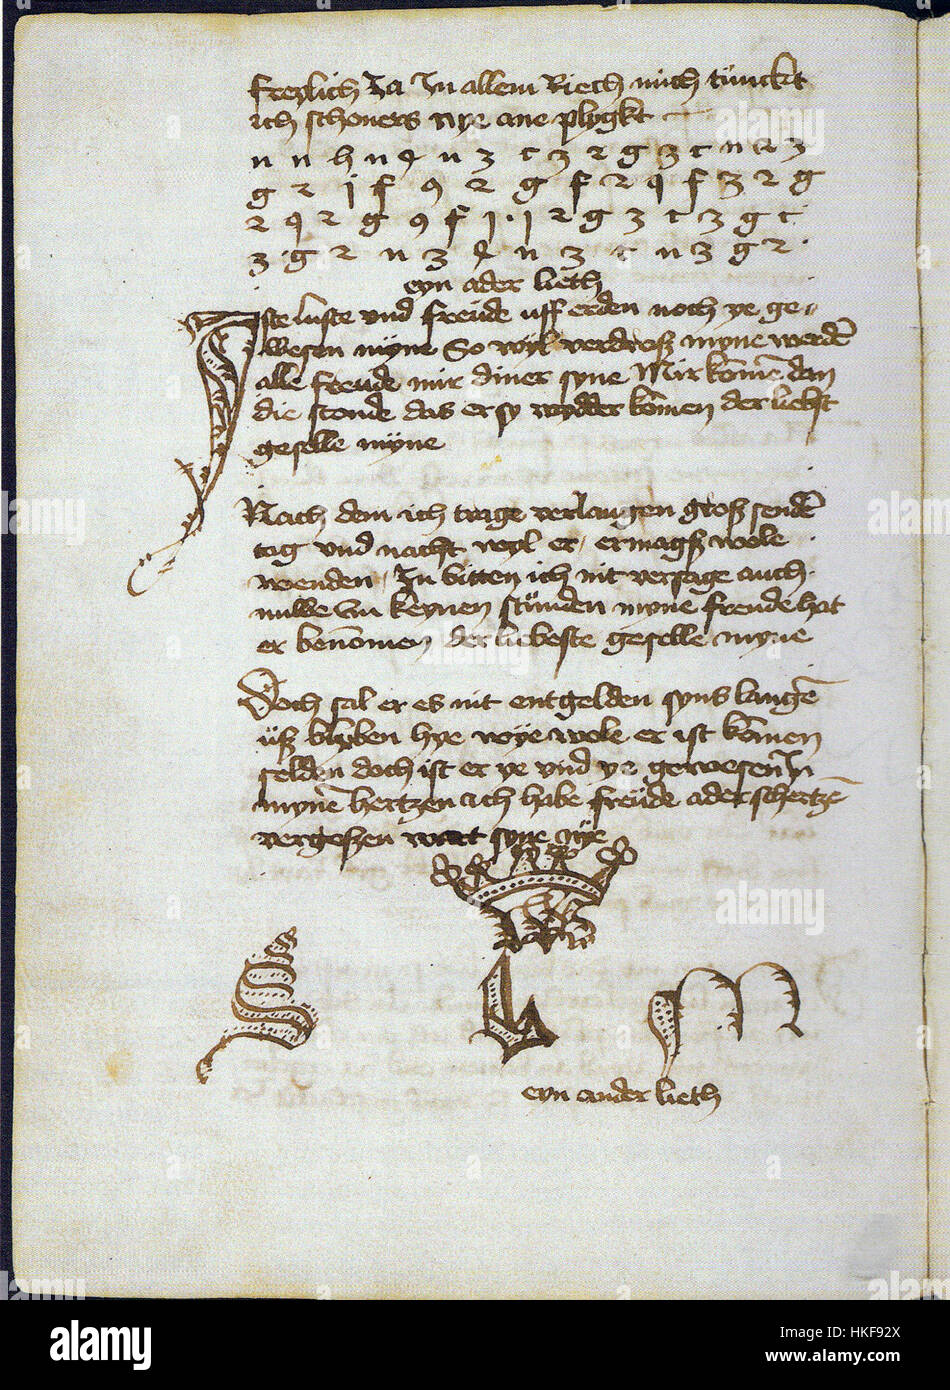 frezlich Ja In allem Riech mich tünckt
ich schoners nye ane plygkt
n n h n q n z c z r g z c n r z
g r j f 9 r g f r q f z r g
r q r g 9 f j · j r g z c z g c
z g r n z q n z c n z g r
eyn ader lieth
Iste luste vnd freude uff erden noch ye ge
wesen myne So wyl verdroß myne werdē
alle freude mir diner syne Mir kōmē dan
die stonde das er sy wydder kōmen der liebst
geselle myne
Nach dem ich trage verlangen groß sendē
tag vnd nacht wyl er ermagß wole
wenden In bitten ich nit versage auch
keynen stünden myne freude hat
er benōmen der liebeste geselle myne
Doch sal er es nit entgelden syns langē
üß blyben hye wye wole er ist kōmen
selden doch ist er ye vnd ye gewesen In
mynē hertzen ich habe freüde ader schertzē
vergeßen wart syne nye
S L M
eyn ander lieth
alamy
Image ID: HKF92X
www.alamy.com